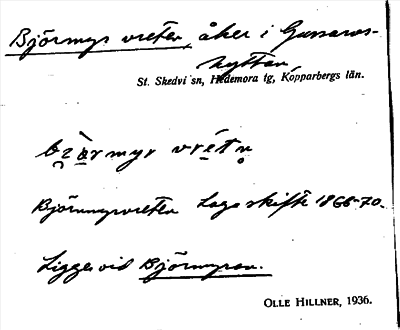 Björmyrs vreten, åker i Gussars-
hyttan,
St. Skedvi sn, Hedemora tg, Kopparbergs län.
vrétn
Björmyrvreten Laga skifte 1866-70.
Ligger vid Björmyran.
OLLE HILLNER, 1936.